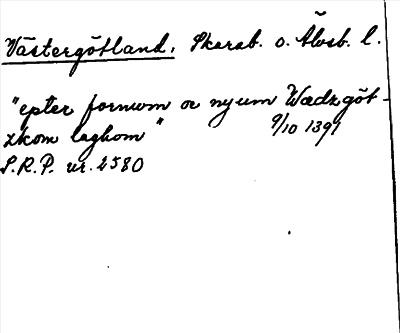 Västergötland, Skarab. o. Älvsb. l.
"epter fornum oc nyum Wædzgöt-
zkom laghom" 9/10 1391
S.R.P. nr. 2580